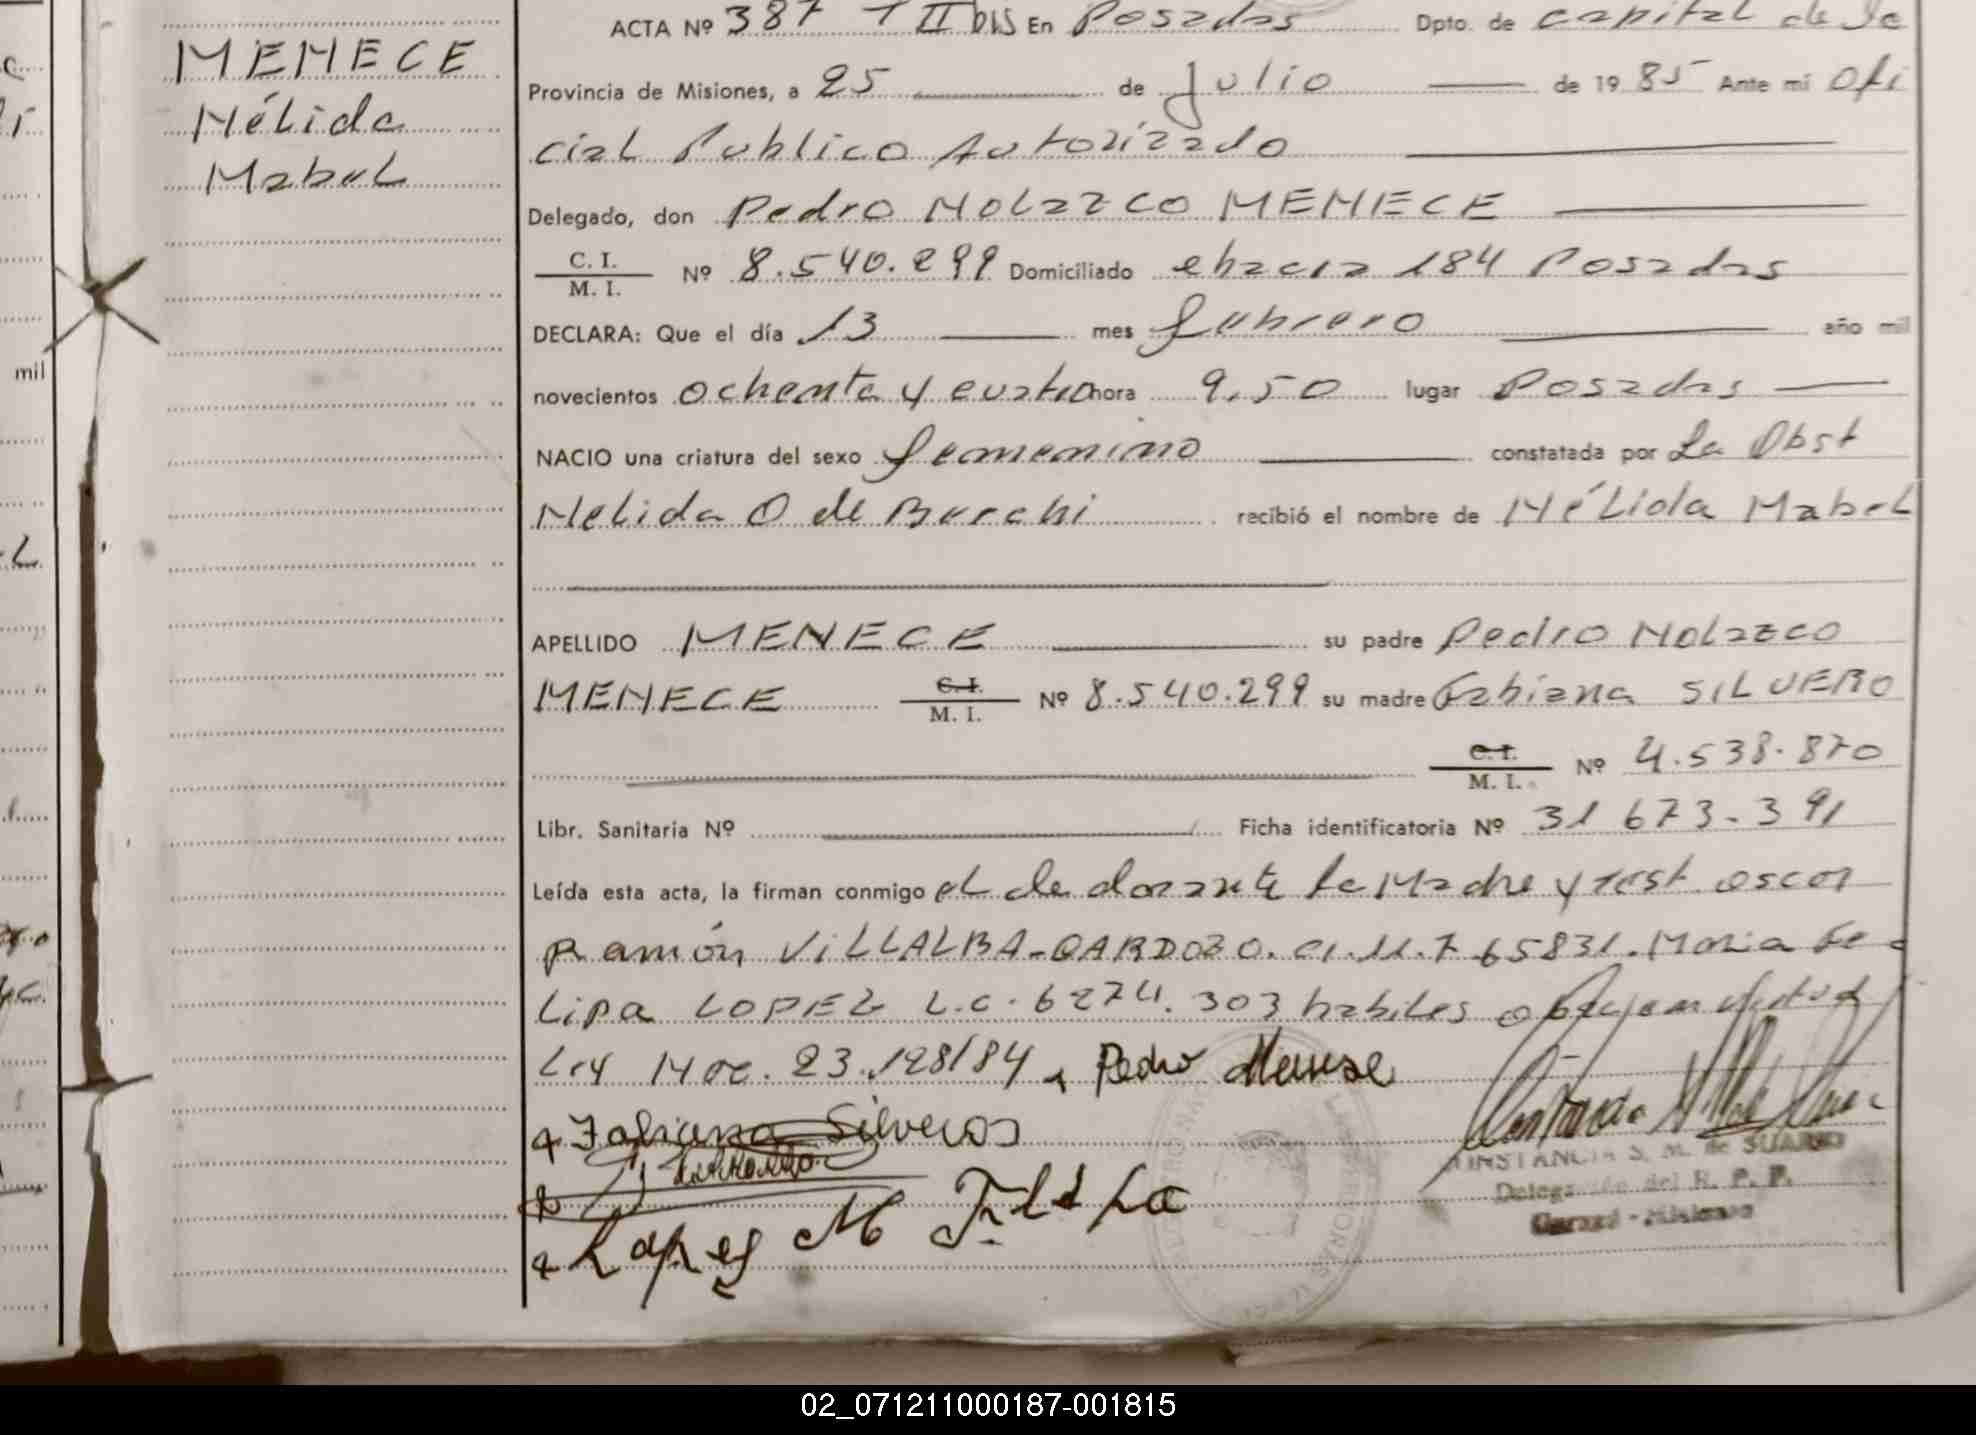 MENECE
Nélida
Mabel
ACTA Nº 387 T II bis En Posadas Dpto. de capital de la
Provincia de Misiones, a 25 de Julio de 1985 Ante mí Ofi
cial Publico Autorizado
Delegado, don Pedro Nolazco MENECE
C. I.
M. I. Nº 8.540.299 Domiciliado chacra 184 Posadas
DECLARA: Que el día 13 mes febrero año mil
novecientos ochenta y cuatro hora 9,50 lugar Posadas
NACIO una criatura del sexo femenino constatada por La Obst
Nelida O de Barchi recibió el nombre de Nélida Mabel
APELLIDO MENECE su padre Pedro Nolazco
MENECE C. I.
M. I. Nº 8.540.299 su madre Fabiana SILVERO
C. I.
M. I. Nº 4.538.870
Libr. Sanitaria Nº Ficha identificatoria Nº 31 673.391
Leída esta acta, la firman conmigo el declarante la Madre y test oscar
Ramón VILLALBA CARDOZO. CI.11.765831. Maria Fe
lipa LOPEZ L.C. 6274.303 habiles
Ley Nac. 23.128/84 Pedro Menese
Fabiana Silveros
Lopes M Felipa
CONSTANCIA S. M. de SUAREZ
Delegación del R. P. P.
Garupá - Misiones
mil
02_071211000187-001815